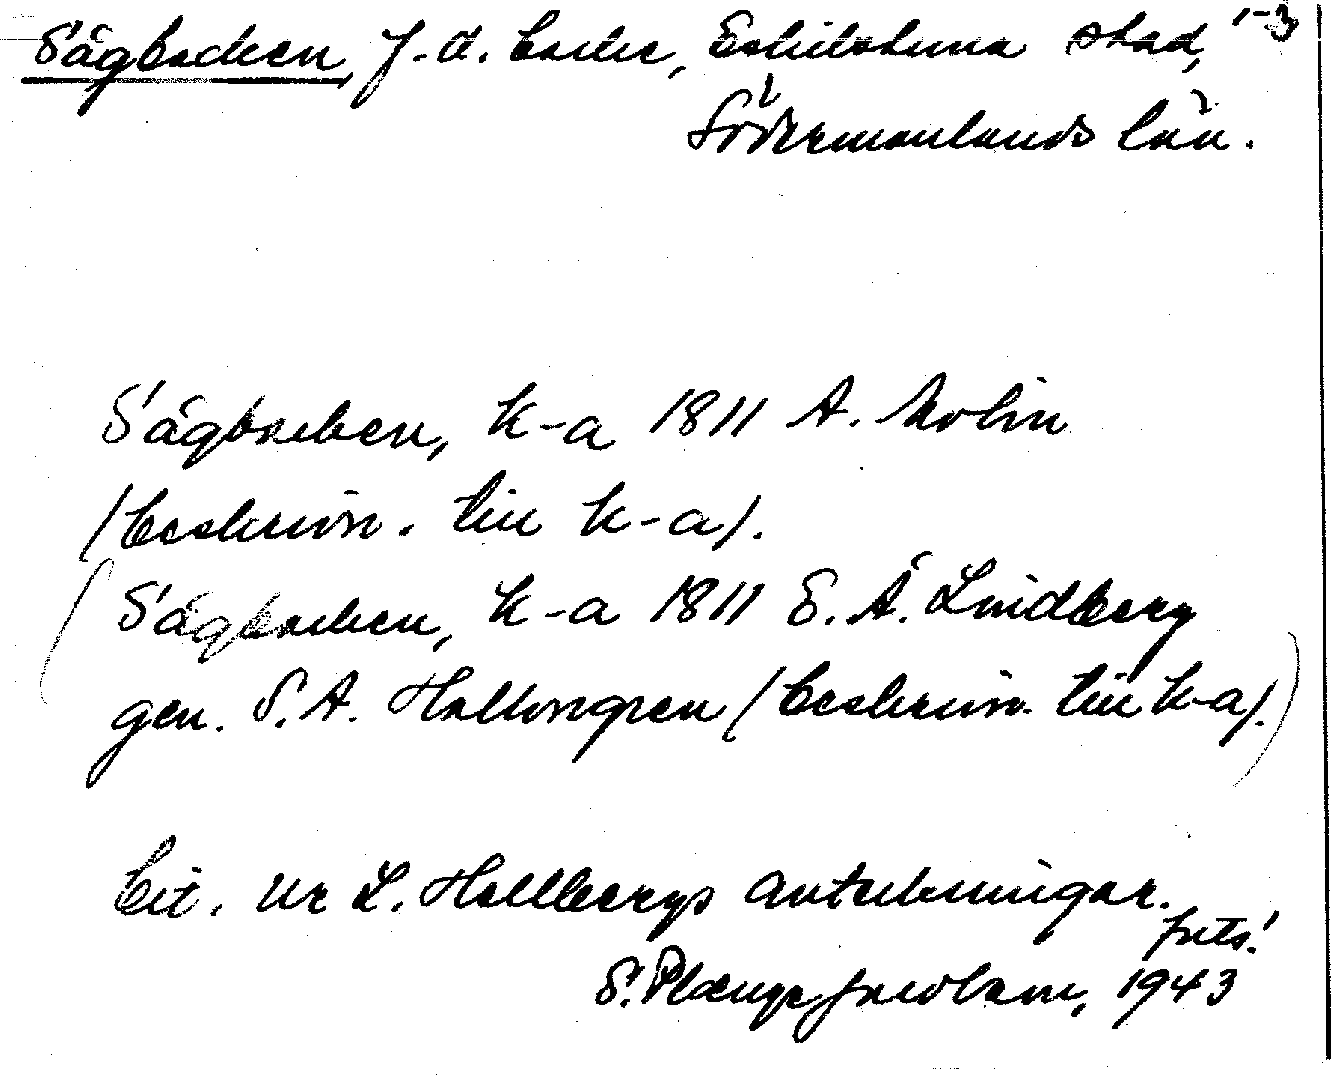 Sågbacken, f.d. backe, Eskilstuna stad, 1-3
Södermanlands län.
Sågbacken, k-a 1811 A. Molin
(beskrivn. till k-a).
(Sågbacken, k-a 1811 E. Å. Lindberg
gen. S. A. Hallongren (beskrivn. till k-a).)
Cit. ur L. Hallbergs anteckningar.
forts!
S. Plænge Jacobson, 1943